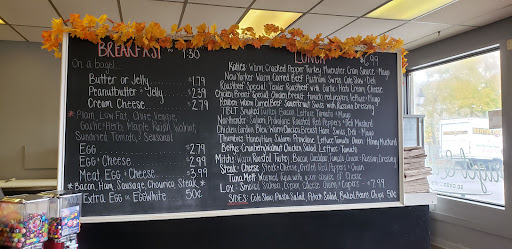 BREAKFAST ~ 9:30
On a bagel...
Butter or Jelly $1.79
Peanutbutter + Jelly $2.39
Cream Cheese $2.79
*Plain, Low Fat, Olive Veggie,
Garlic Herb, Maple Raisin Walnut,
Sundried Tomato, + Seasonal
Egg $2.79
Egg + Cheese $2.99
Meat, Egg + Cheese $3.99
*Bacon, Ham, Sausage, Chourica, Steak*
Extra Egg or Eggwhite 50¢
LUNCH $6.99
Warm, Cracked Pepper Turkey, Muenster, Swiss + Mayo
New Yorker Warm Corned Beef, Pastrami, Swiss, Cole Slaw + Deli
Roastbeef Special Tender Roastbeef with Garlic + Herb Cream Cheese
Chicken Breast Special Chicken Breast, Tomato, red peppers, lettuce + Mayo
Reuben Warm Corned Beef, Sauerkraut, Swiss with Russian Dressing
TBLT Smoked Turkey, Bacon, Lettuce, Tomato + Mayo
Salami, Provolone, Roasted Red Peppers + Hot Mustard
Chicken Gordon Bleu Warm Chicken Breast, Ham, Swiss, Deli + Mayo
Honey Ham, Salami, Provolone, Lettuce, Tomato, Onion + Honey Mustard
Cranberry Walnut Chicken Salad, Lettuce + Tomato
Mitch: Warm Roasted Turkey, Bacon, Cheddar, Tomato, Onion + Russian Dressing
Steak + Cheese Steak + Cheese, Grilled Red Peppers + Onion
Tuna Melt Warmed Tuna with your choice of Cheese
Lox - Smoked Salmon, Cream Cheese, Onion + Capers - $7.99
SIDES: Cole Slaw, Pasta Salad, Potato Salad, Baked Beans, Chips 50¢